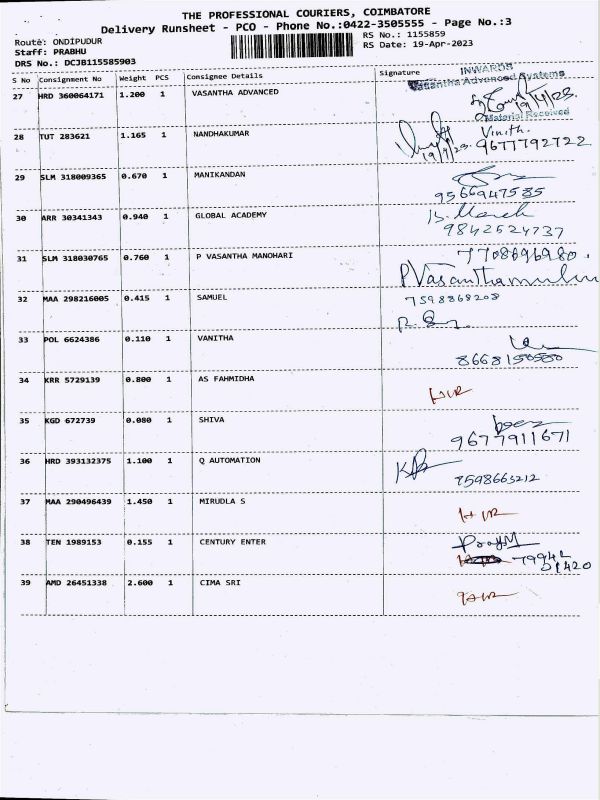 THE PROFESSIONAL COURIERS, COIMBATORE
Delivery Runsheet - PCO - Phone No.:0422-3505555 - Page No.:3
Route: ONDIPUDUR
RS No.: 1155859
Staff: PRABHU
RS Date: 19-Apr-2023
DRS No.: DCJB115585903
S No Consignment No Weight PCS Consignee Details Signature
INWARDS
Vasantha Advanced Systems
27 HRD 360064171 1.200 1 VASANTHA ADVANCED
19/4/23.
Material Received
28 TUT 283621 1.165 1 NANDHAKUMAR
Vinith.
19/4/23. 9677792722
29 SLM 318009365 0.670 1 MANIKANDAN
9566947585
30 ARR 30341343 0.940 1 GLOBAL ACADEMY
9842624737
31 SLM 318030765 0.760 1 P VASANTHA MANOHARI
7708696980.
32 MAA 298216005 0.415 1 SAMUEL
7598868208
33 POL 6624386 0.110 1 VANITHA
8668150580
34 KRR 5729139 0.800 1 AS FAHMIDHA
35 KGD 672739 0.080 1 SHIVA
9677911671
36 HRD 393132375 1.100 1 Q AUTOMATION
7598663212
37 MAA 290496439 1.450 1 MIRUDLA S
38 TEN 1989153 0.155 1 CENTURY ENTER
39 AMD 26451338 2.600 1 CIMA SRI